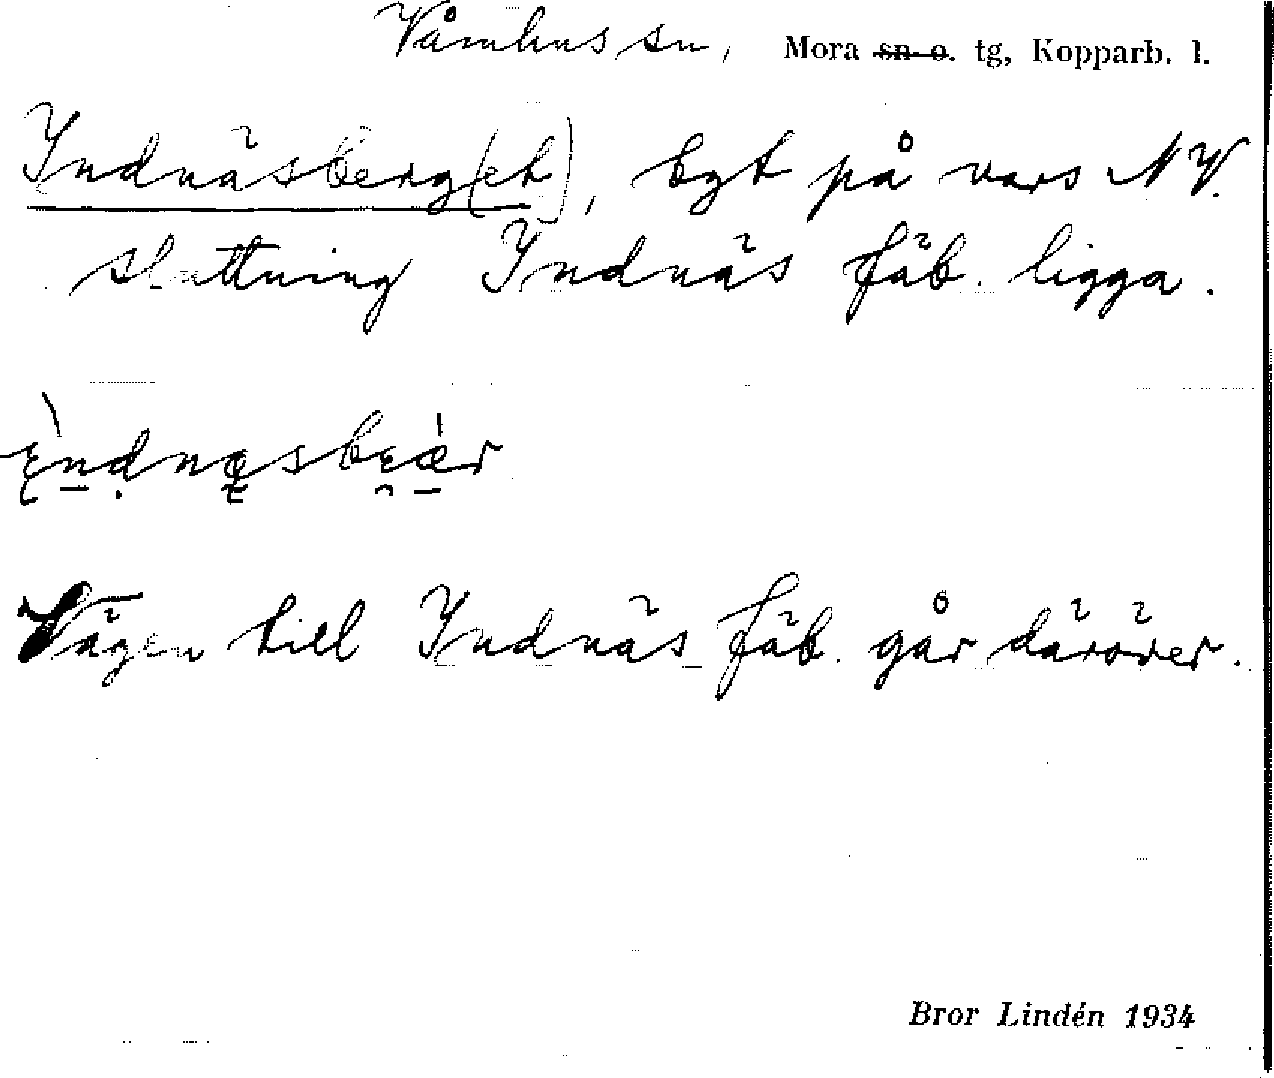 Våmhus sn, Mora sn o. tg, Kopparb. l.
Indnäsberg(et), bgt på vars NV.
sluttning Indnäs fäb. ligga.
Vägen till Indnäs fäb. går däröver.
Bror Lindén 1934